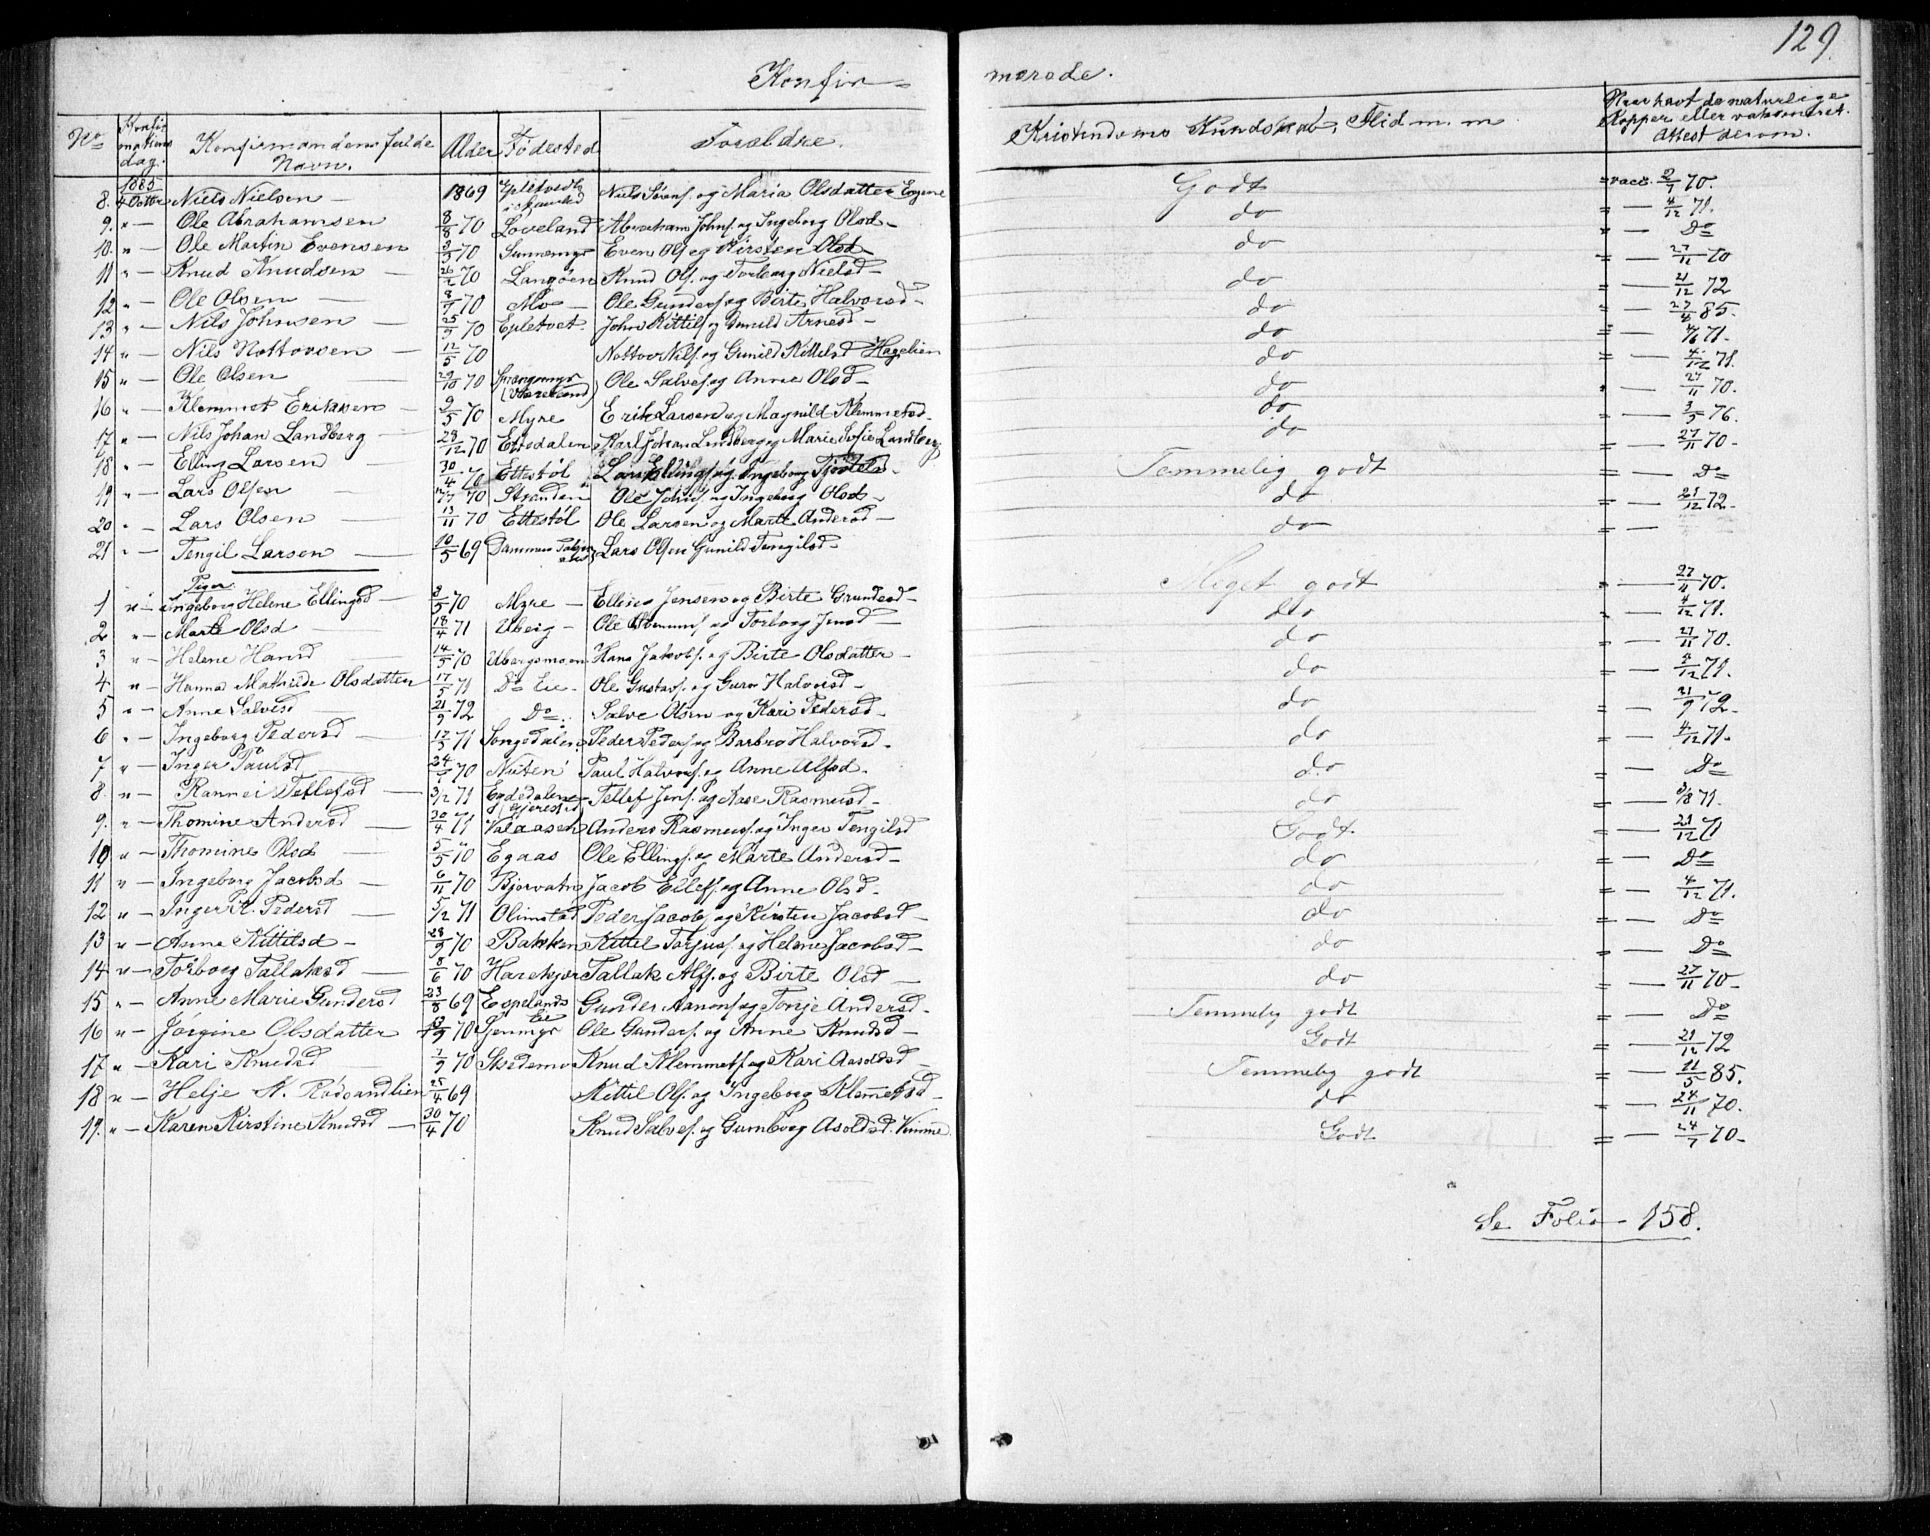 129.
Konfir-
merede.
No
Konfirmationsdag.
Konfirmandens fulde Navn.
Alder
Fødested
Forældre.
Kristendoms Kundskab, Flid m. m.
Naar havt de naturlige Kopper eller vaksineret. Attest derom.
8. 1885 4 Octbr Niels Nielsen — 1869 Niels Sørens. og Maria Olsdatter Godt = vacc. 2/7 70.
9. " — Ole Abrahamsen 8/8 70 Løveland Abraham Johns. og Ingeborg Olsd — do = — 4/12 71.
10. " — Ole Martin Evensen 70 Sunnemyr Even Ols. og Kirsten Olsd do " — Do
11 " — Knud Knudsen — 26/2 70 Langøen Knud Ols. og Torborg Nielsd — do = — 27/11 70
12 " — Ole Olsen — 8/7 70 Mo — Ole Gunders. og Birte Halvorsd — do = — 21/12 72
13 " — Nils Johnsen — 25/9 70 Epletvet John Kittils. og Gunild Arnesd — do = — 85.
14 " — Nils Nottovsen — 12/5 70 Nottov Nils. og Gunild Kittilsd Hagelien do = — 71.
15 " — Ole Olsen — 29/10 70 Ole Salves. og Anne Olsd — do = — 4/12 71.
16 " — Klemmet Eriksen — 9/5 70 Myre Erik Larsen og Magnild Klemmetsd. do " — 27/11 70.
17 " — Nils Johan Landberg — 28/12 70 Karl Johan Landberg og Marie Sofie Landberg do = — 3/5 76.
18 " — Elling Larsen — 30/4 70 Ettestøl Lars Ellings. og Ingeborg Tjøstelsd — Temmelig godt = — 27/11 70 —
19 " — Lars Olsen — 70 Stranden Ole Johns. og Ingeborg Olsd — do = — Do
20 " — Lars Olsen — 13/11 70 Ettestøl Ole Larsen og Marte Andersd — do = — 21/12 72 —
21 " — Tengil Larsen — 10/5 69 Lars Olsen Gunild Tengilsd —
Piger
1 " — Ingeborg Helene Ellingsd — 70 Myre — Elling Jensen og Birte Grundesd — Meget godt " — 27/11 70.
2 " — Marte Olsd — 18/4 71 Ubeig — Ole og Torborg Jensd — do " — 4/12 71.
3 " Helene Hansd — 14/5 70 Ubergsmoen Hans Jakobs. og Birte Olsdatter — do = — 27/11 70.
4. " Hanna Mathilde Olsdatter 17/5 71 Do Eie — Ole Gustavs. og Guro Halvorsd — do = — 4/12 71.
5 " — Anne Salvesd — 21/9 72 Do. Salve Olsen og Kari Pedersd — do = — 21/9 72 —
6 " — Ingeborg Pedersd — 12/5 71 Songedalen Peder Peders. og Barbro Halvorsd — do = — 4/12 71.
7 " — Inger Paulsd — 24/7 70 Nuten Paul Halvors. og Anne Alfsd. do = — Do
8 " — Rannei Tellefsd — 3/2 71 Tellef Jens. og Aase Rasmusd — do = — 3/8 71.
9. " — Thomine Andersd — 30/4 71 Valaasen Anders Rasmuss. og Inger Tengilsd Godt. = — 21/12 71
10 " — Thomine Olsd — 5/5 70 Egaas Ole Ellings. og Marte Andersd — do = — Do
11 " — Ingeborg Jacobsd — 6/11 70 Bjorvatn Jacob og Anne Olsd — do = — 4/12 71.
12 " — Inger K. Pedersd — 5/2 71 Olimstad Peder Jacobs. og Kirsten Jacobsd — do = — Do
13 " — Anne Kittilsd — 28/9 70 Bakken Kittel Torjuss. og Helene Jacobsd — do = — Do
14 " — Torborg Tallaksd — 8/6 70 Harekjær Tallak Alfs. og Birte Olsd — do = — 27/11 70 —
15 " — Anne Marie Gundersd 23/8 69 Espelands Eie Gunder Aanons. og Tonje Andersd. Temmelig godt = — Do
16 " — Jørgine Olsdatter — 70 Ole Gunders. og Anne Knudsd — Godt = — 21/12 72
17 " — Kari Knudsd — 7/9 70 Skedemo Knud Klemmets. og Kari Aasoldsd — Temmelig godt = — 11/5 85.
18 " — Helje N. Rødsandlien 25/4 69 Kittil Ols. og Ingeborg Klemetsd — do = — 24/11 70.
19. " — Karen Kirstine Knudsd — 30/4 70 Knud Salves. og Gumborg Asoldsd. Vimme. Godt = — 24/7 70 —
Se Folio — 158.